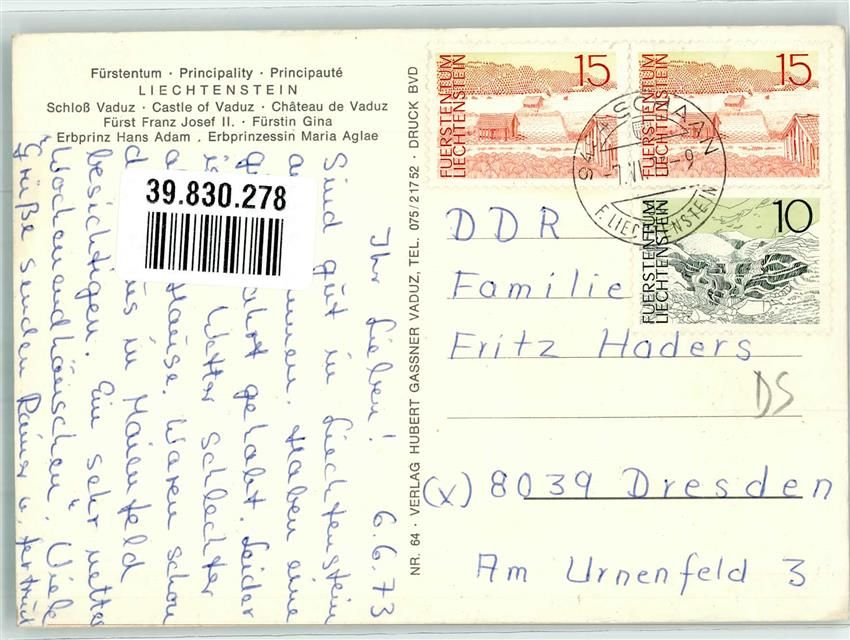 Fürstentum · Principality · Principauté
LIECHTENSTEIN
Schloß Vaduz · Castle of Vaduz · Château de Vaduz
Fürst Franz Josef II. · Fürstin Gina
Erbprinz Hans Adam . Erbprinzessin Maria Aglae
39.830.278
Ihr Lieben! 6.6.73
Sind gut in Liechtenstein
Haben eine
gehabt. Leider
Wetter schlechter
Hause. Waren schon
in Maienfeld
besichtigen. Ein sehr nettes
"Wochenendhäuschen". Viele
Grüße senden Rainer u.
NR. 64 · VERLAG HUBERT GASSNER VADUZ, TEL. 075/21752 · DRUCK BVD
FUERSTENTUM
LIECHTENSTEIN
15
FUERSTENTUM
LIECHTENSTEIN
15
FUERSTENTUM
LIECHTENSTEIN
10
9494 SCHAAN
-9
F. LIECHTENSTEIN
DDR
Familie
Fritz Haders
DS
(x) 8039 Dresden
Am Urnenfeld 3